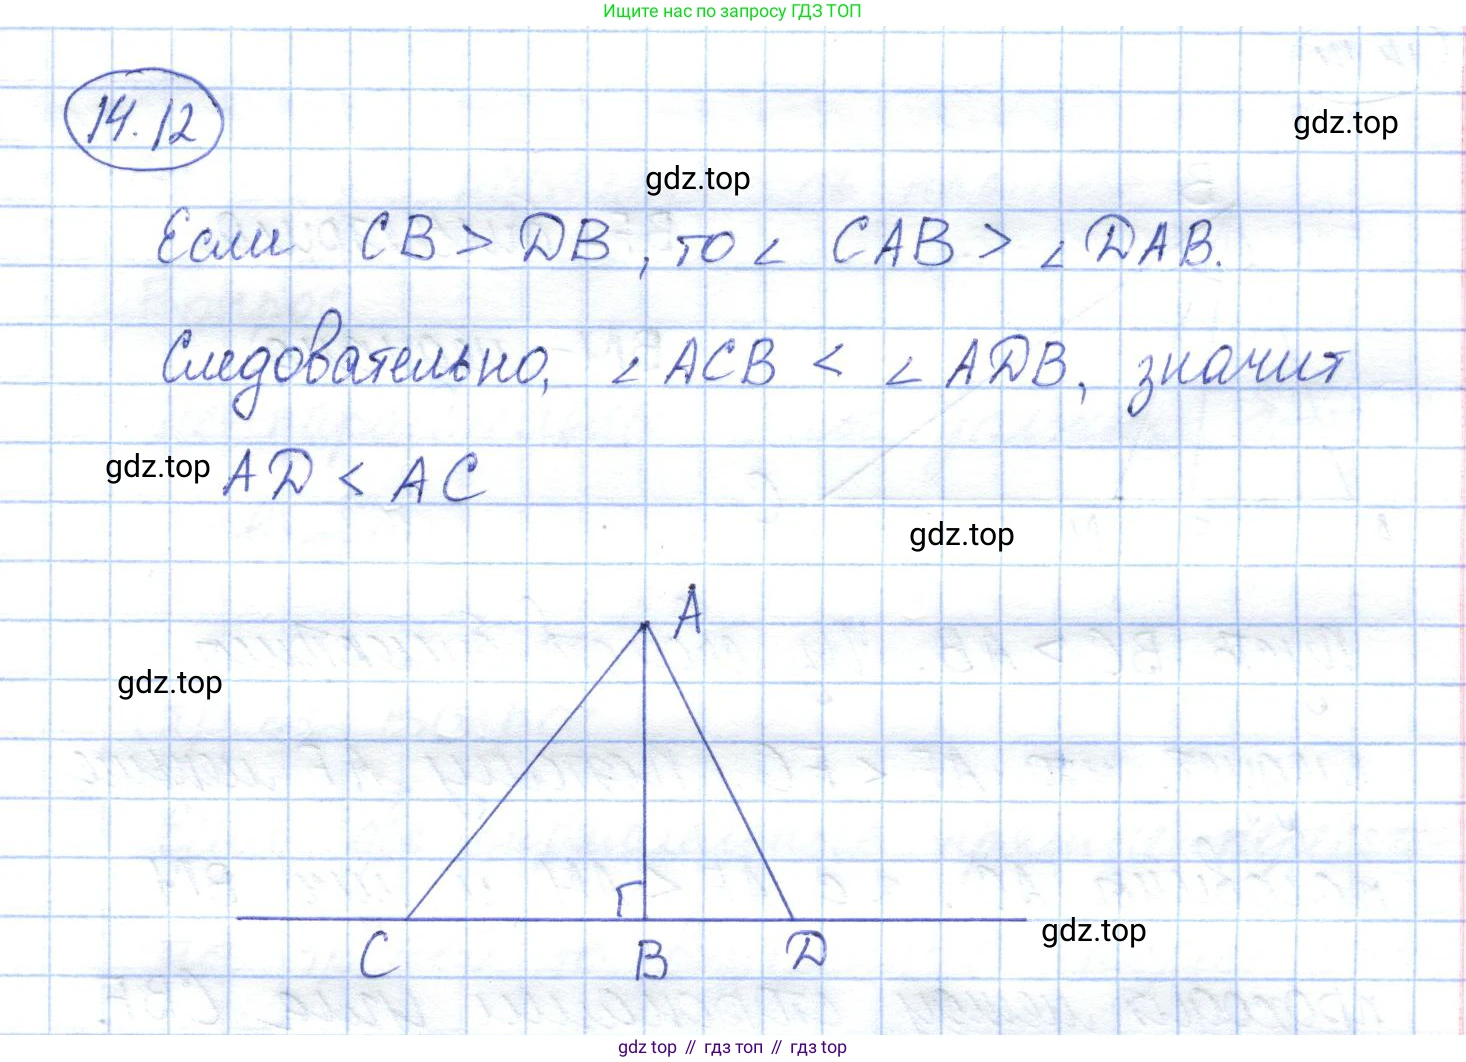 Ищите нас по запросу ГДЗ ТОП
14.12
gdz.top
gdz.top
Если CB > DB, то ∠ CAB > ∠ DAB.
Следовательно, ∠ ACB < ∠ ADB, значит
gdz.top AD < AC
gdz.top
A
gdz.top
C B D
gdz.top
gdz top // гдз топ // гдз top